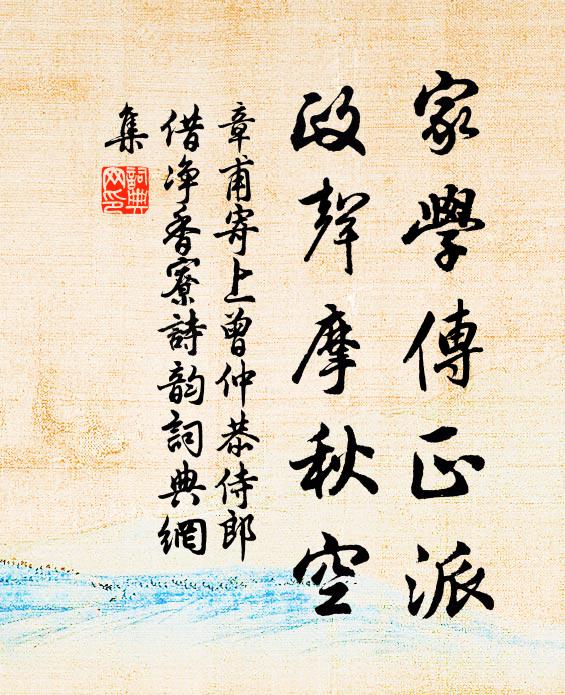 家學傳正派
政聲摩秋空
章甫寄上曾仲恭侍郎
借净香寮詩韵詞典網
集
詞典
网印